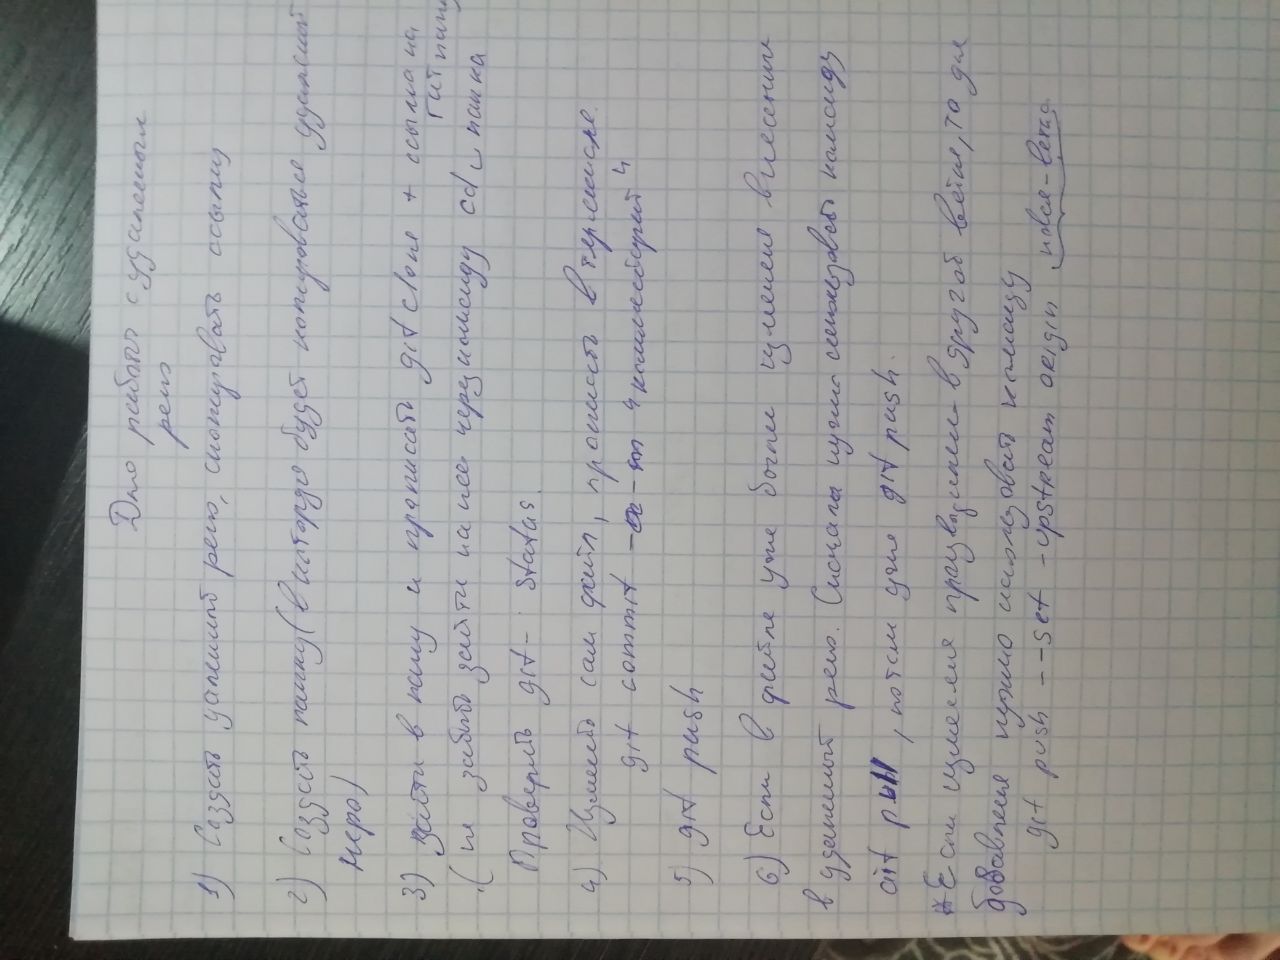 Для работы с удаленным
репо
1) Создать удаленный репо, скопировать ссылку
2) Создать папку (в которую будет копироваться удаленный
репо)
3) Зайти в папку и прописать git clone + ссылка на
гит
(не забыть зайти на нее через команду cd папка
Проверить git status.
4) Изменить сам файл, прописать в терминале.
git commit -am "комментарий"
5) git push
6) Если в файле уже были изменения внесенные
в удаленный репо. Сначала нужно использовать команду
git pull, потом уже git push.
* Если изменения произведены в другой ветке, то для
добавления нужно использовать команду
git push --set-upstream origin новая-ветка